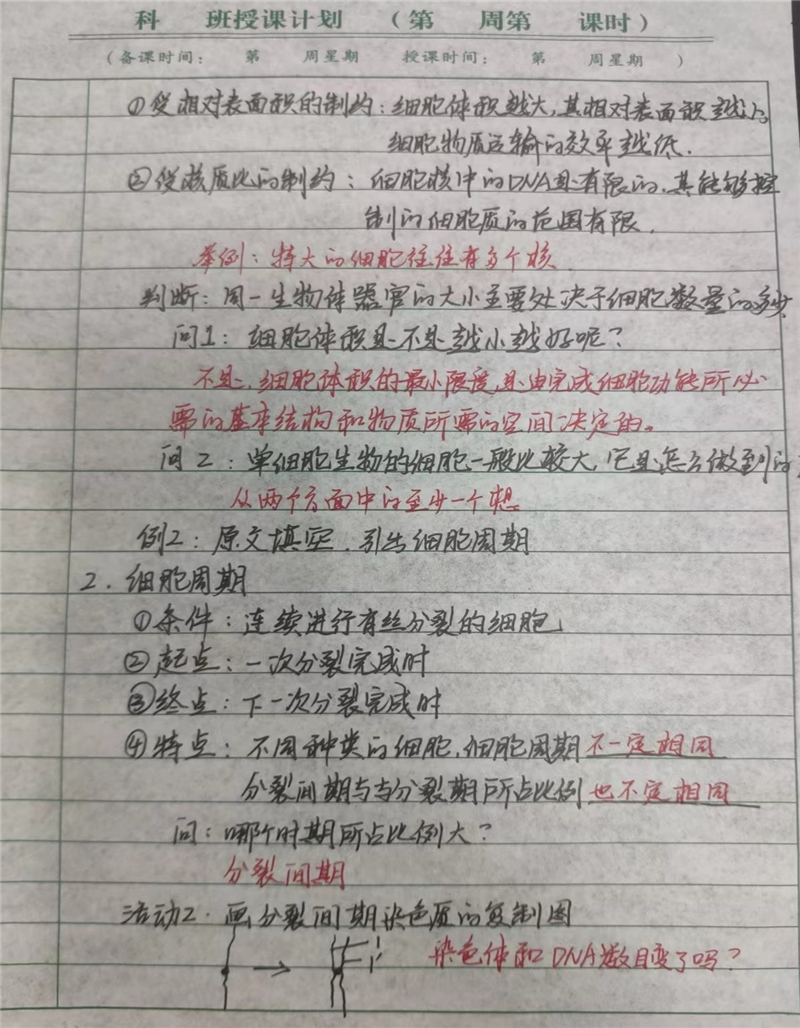 科 班授课计划 （第 周第 课时）
（备课时间： 第 周星期 授课时间： 第 周星期 ）
①受相对表面积的制约：细胞体积越大，其相对表面积越小。
细胞物质运输的效率越低.
②受核质比的制约：细胞核中的DNA是有限的，其能够控
制的细胞质的范围有限.
举例：特大的细胞往往有多个核.
判断：同一生物体器官的大小主要处决于细胞数量的多少
问1：细胞体积是不是越小越好呢？
不是，细胞体积的最小限度，是由完成细胞功能所必
需的基本结构和物质所需的空间决定的。
问2：单细胞生物的细胞一般比较大，它是怎么做到的
从两个方面中的至少一个想
例2：原文填空，引出细胞周期
2.细胞周期
①条件：连续进行有丝分裂的细胞
②起点：一次分裂完成时
③终点：下一次分裂完成时
④特点：不同种类的细胞，细胞周期不一定相同
分裂间期与与分裂期所占比例也不定相同
问：哪个时期所占比例大？
分裂间期
活动2.画分裂间期染色质的复制图
染色体和DNA数目变了吗？